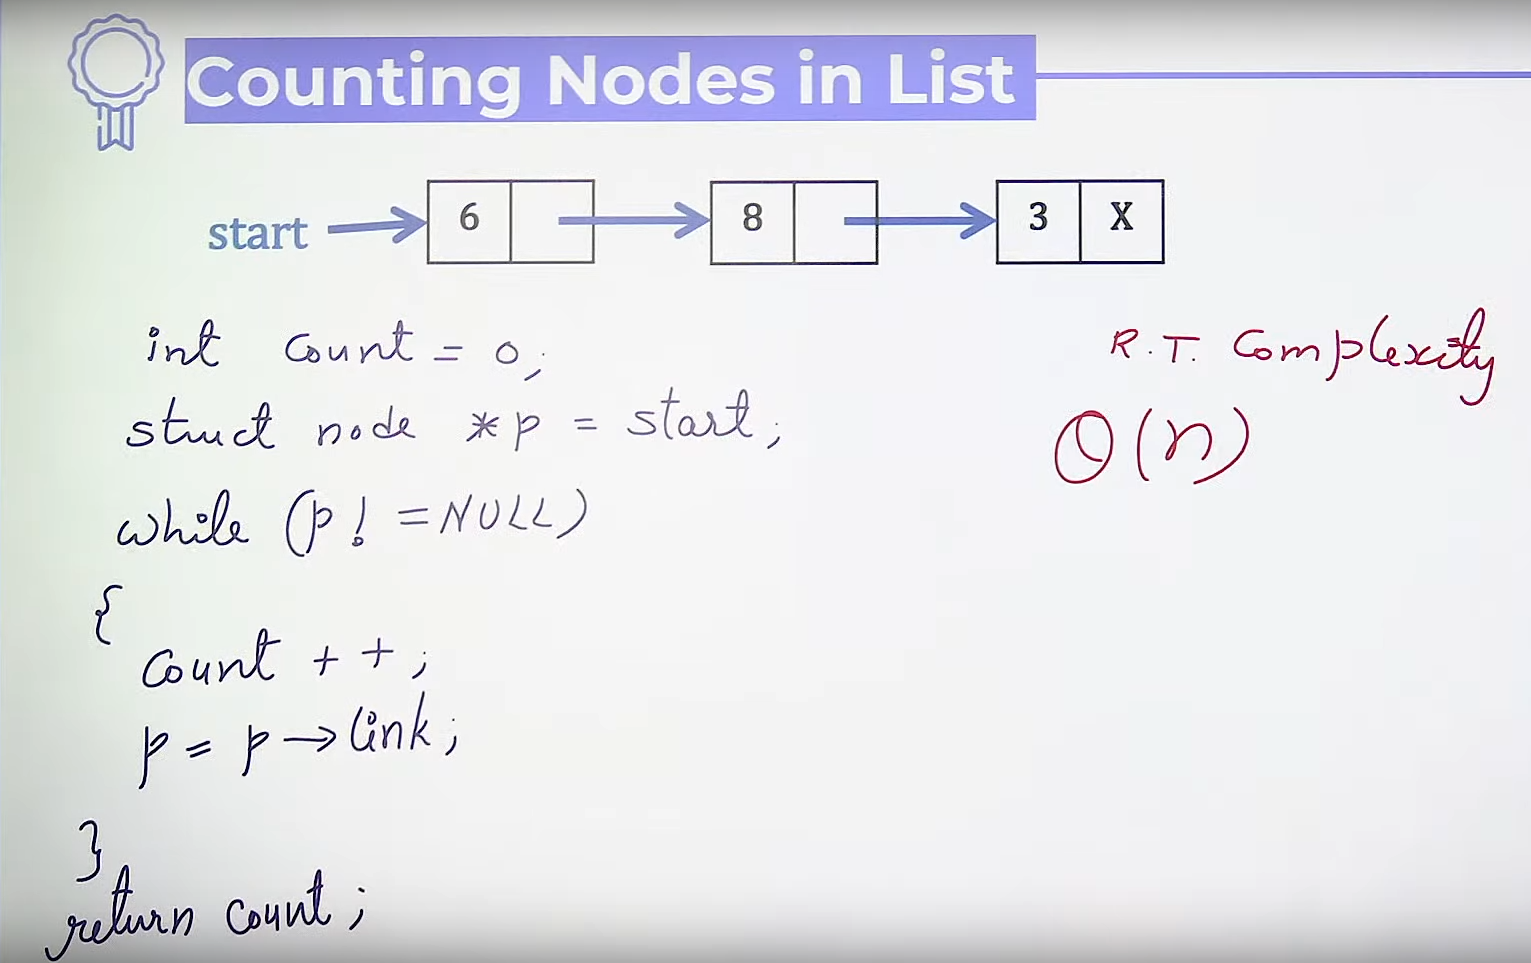 Counting Nodes in List
start 6 8 3 X
int count = 0;
struct node *p = start;
while (p! =NULL)
{
count + +;
p = p → link;
}
return count;
R.T. Complexity
Θ(n)